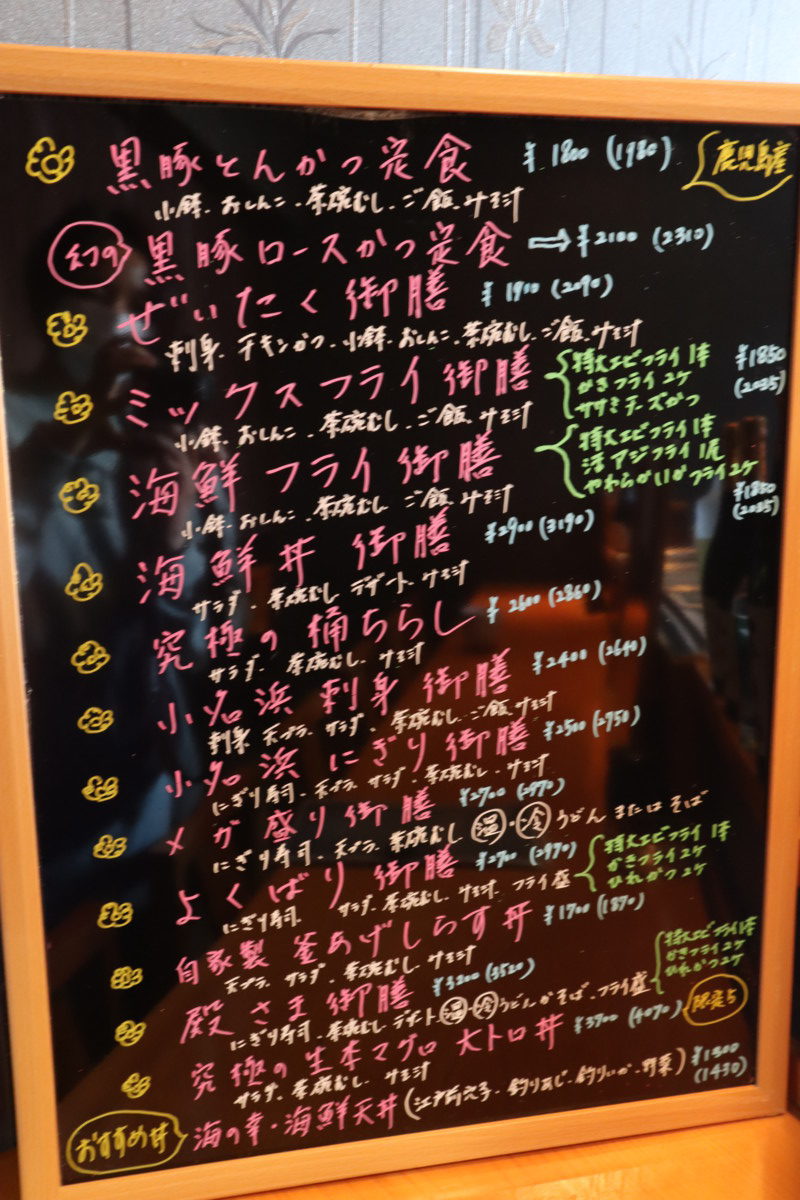 黒豚とんかつ定食 ¥1800 (1980) 鹿児島産
小鉢、おしんこ、茶碗むし、ご飯、みそ汁
幻の 黒豚ロースかつ定食 ⇒ ¥2100 (2310)
ぜいたく御膳 ¥1900 (2090)
刺身、チキンかつ、小鉢、おしんこ、茶碗むし、ご飯、みそ汁
ミックスフライ御膳 ¥1850 (2035)
特大エビフライ1本
かきフライ2ケ
ササミチーズかつ
小鉢、おしんこ、茶碗むし、ご飯、みそ汁
海鮮フライ御膳 ¥1850 (2035)
特大エビフライ1本
活アジフライ1尾
やわらかいかフライ2ケ
小鉢、おしんこ、茶碗むし ご飯、みそ汁
海鮮丼 御膳 ¥2900 (3190)
サラダ、茶碗むし デザート、みそ汁
究極の桶ちらし ¥2600 (2860)
サラダ、茶碗むし、みそ汁
小名浜刺身御膳 ¥2400 (2640)
刺身 天プラ、サラダ、茶碗むし、ご飯、みそ汁
小名浜にぎり御膳 ¥2500 (2750)
にぎり寿司、天プラ、サラダ、茶碗むし、みそ汁
メガ盛り御膳 ¥2700 (2970)
にぎり寿司、天プラ、茶碗むし 温・冷 うどん または そば
よくばり御膳 ¥2700 (2970)
特大エビフライ1本
かきフライ2ケ
ひれかつ2ケ
にぎり寿司 サラダ、茶碗むし、みそ汁、フライ盛
自家製 釜あげしらす丼 ¥1700 (1870)
天プラ、サラダ、茶碗むし、みそ汁
殿さま御膳 ¥3200 (3520)
特大エビフライ1本
かきフライ2ケ
ひれかつ2ケ
にぎり寿司、茶碗むし、デザート 温・冷 うどんかそば、フライ盛
究極の生本マグロ大トロ丼 ¥3700 (4070) 限定5
サラダ、茶碗むし、みそ汁
おすすめ丼 海の幸・海鮮天丼 (江戸前穴子、釣りあじ、釣りいか、野菜) ¥1300 (1430)